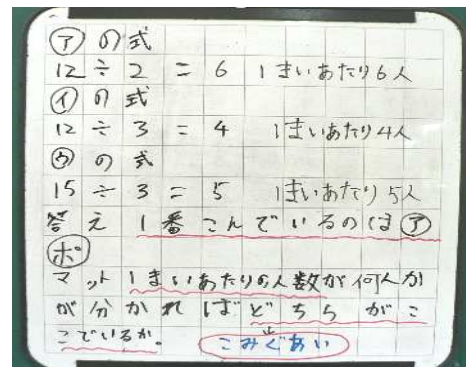 ㋐の式
12÷2=6 1まいあたり6人
㋑の式
12÷3=4 1まいあたり4人
㋒の式
15÷3=5 1まいあたり5人
答え 1番こんでいるのは㋐
ポ
マット1まいあたりの人数が何人か
が分かればどちらがこ
こでいるか。 こみぐあい